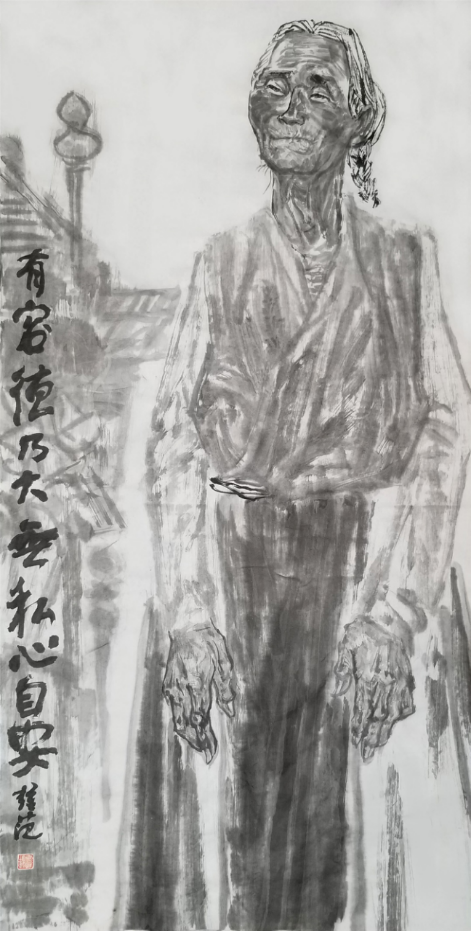 有容德乃大無私心自安